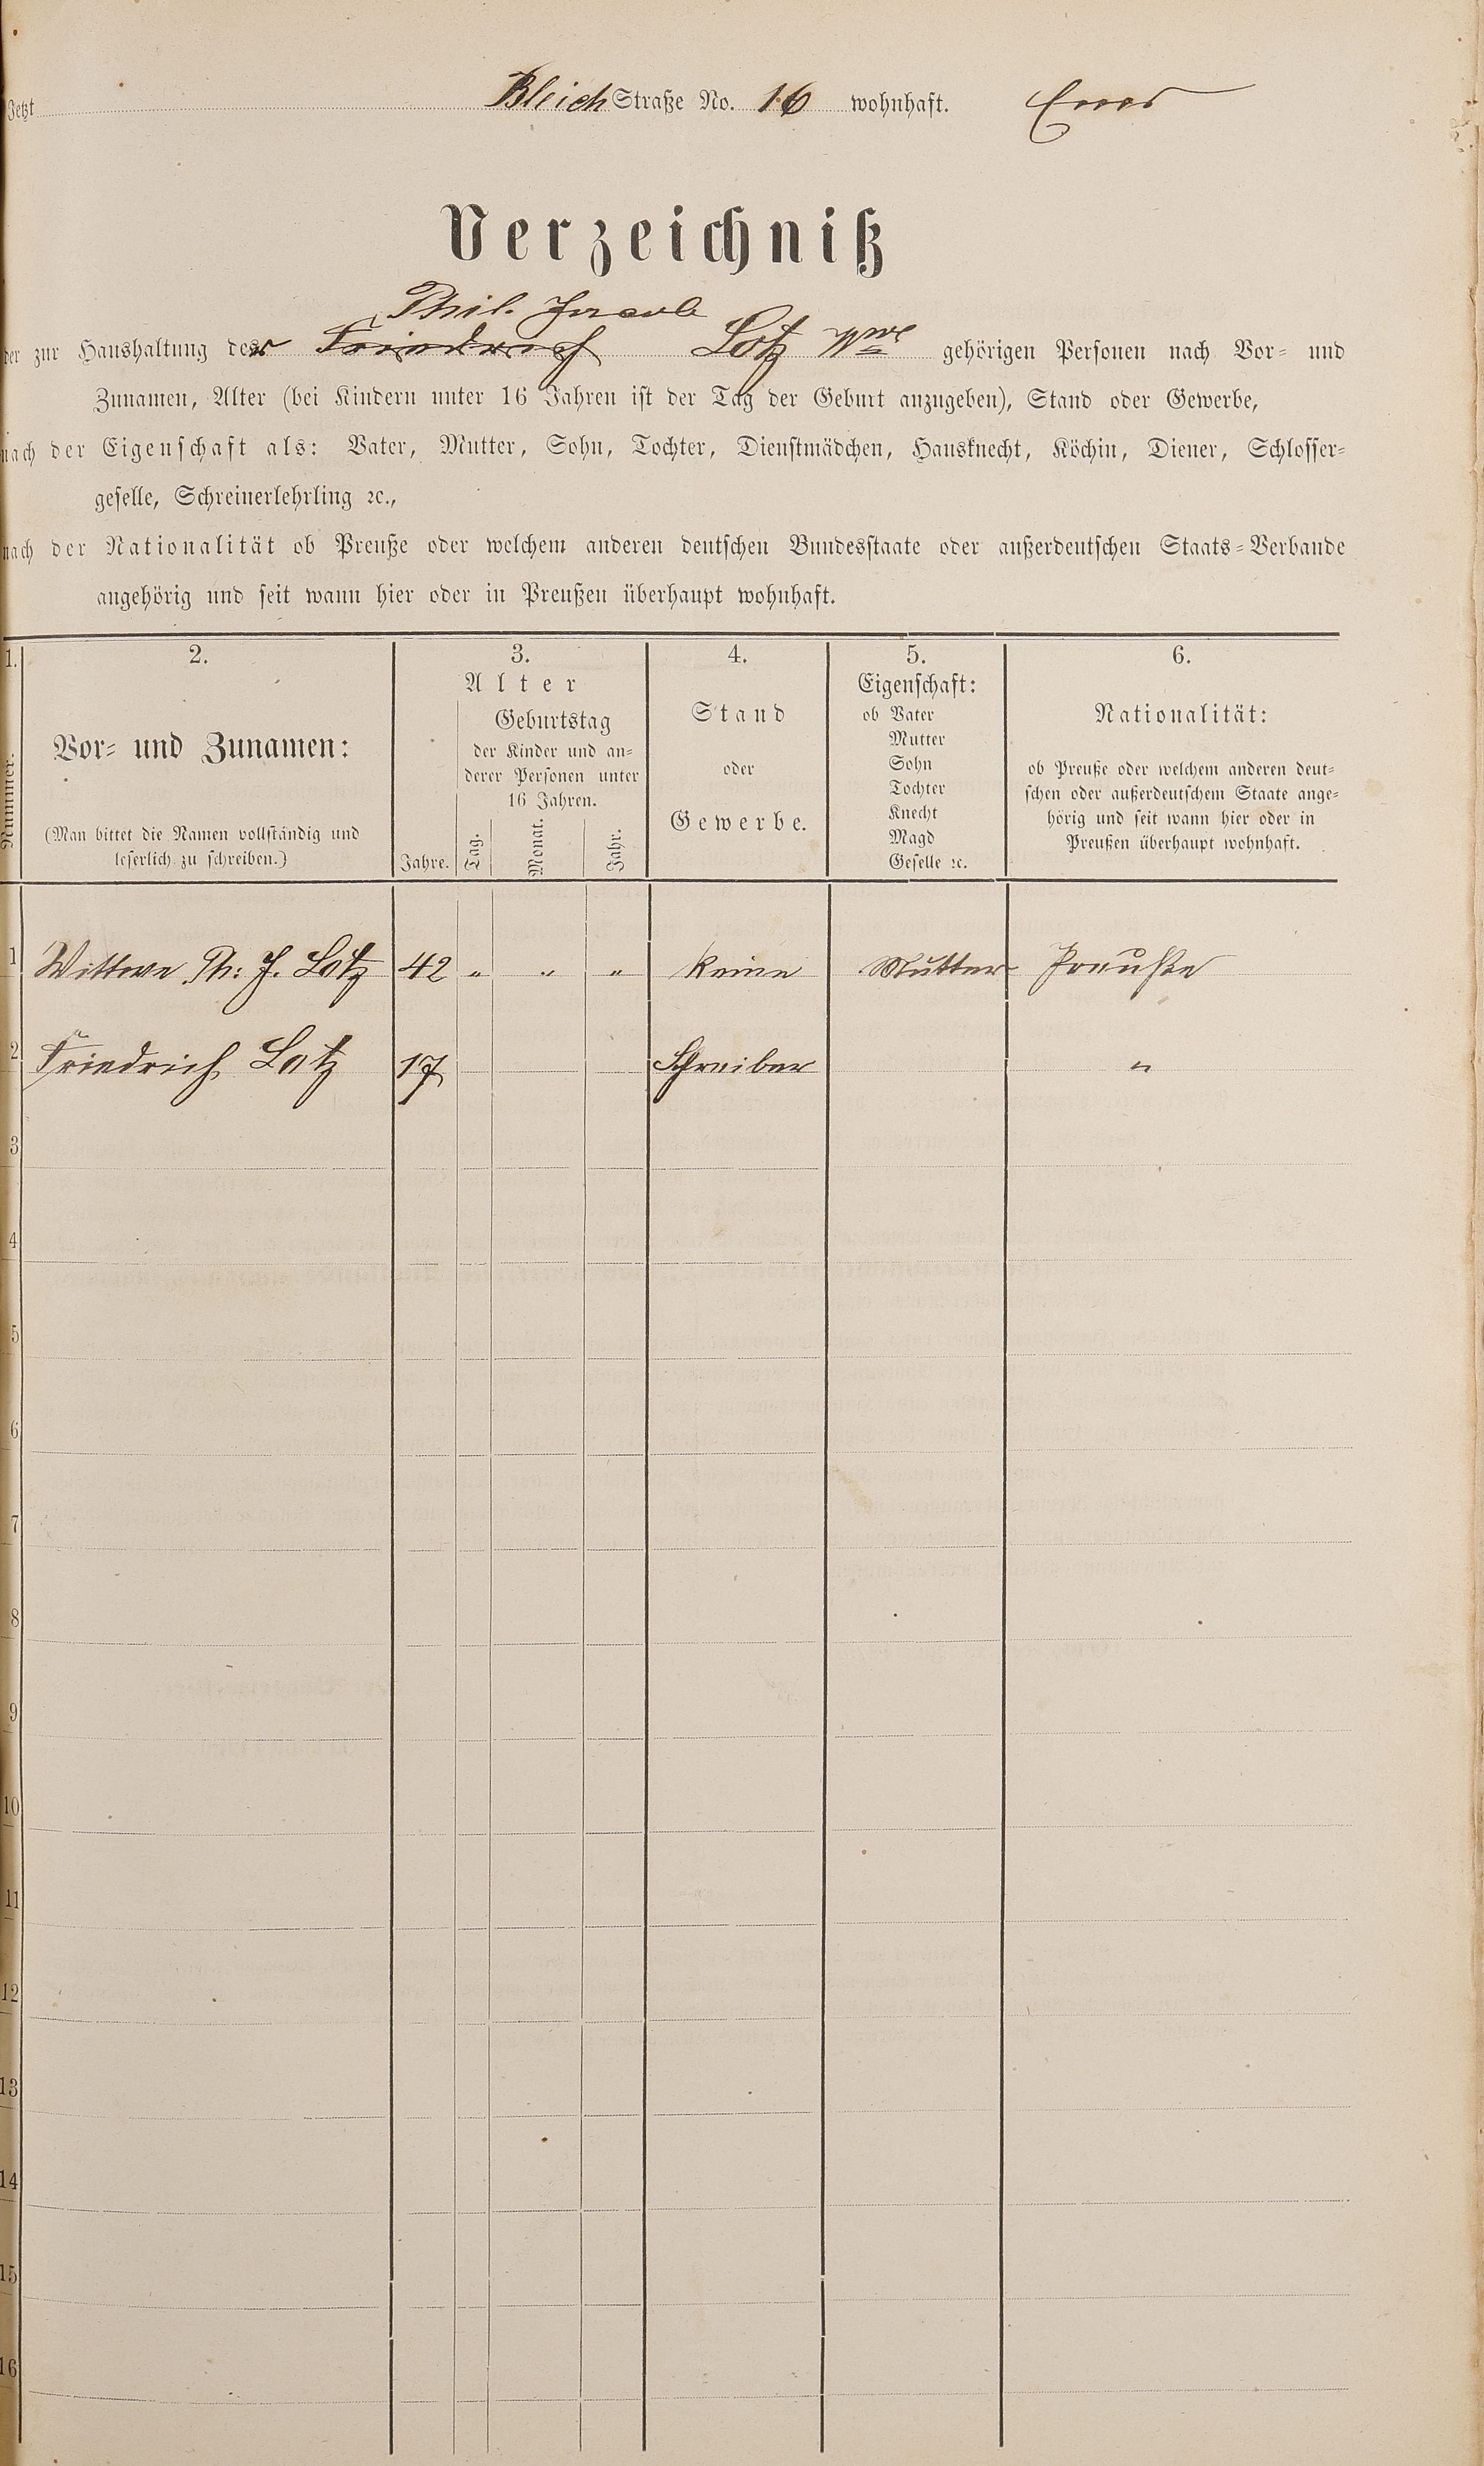 Jetzt Bleich Straße No. 16 wohnhaft. Ems
Verzeichniß
Phil. Jacob
der zur Haushaltung der Friedrich Lotz Wwe gehörigen Personen nach Vor- und
Zunamen, Alter (bei Kindern unter 16 Jahren ist der Tag der Geburt anzugeben), Stand oder Gewerbe,
nach der Eigenschaft als: Vater, Mutter, Sohn, Tochter, Dienstmädchen, Hausknecht, Köchin, Diener, Schlosser-
geselle, Schreinerlehrling ꝛc.,
nach der Nationalität ob Preuße oder welchem anderen deutschen Bundesstaate oder außerdeutschen Staats-Verbande
angehörig und seit wann hier oder in Preußen überhaupt wohnhaft.
1.
Nummer.
2.
Vor- und Zunamen:
(Man bittet die Namen vollständig und
leserlich zu schreiben.)
3.
Alter
Jahre.
Geburtstag
der Kinder und an-
derer Personen unter
16 Jahren.
Tag. Monat. Jahr.
4.
Stand
oder
Gewerbe.
5.
Eigenschaft:
ob Vater
Mutter
Sohn
Tochter
Knecht
Magd
Geselle ꝛc.
6.
Nationalität:
ob Preuße oder welchem anderen deut-
schen oder außerdeutschem Staate ange-
hörig und seit wann hier oder in
Preußen überhaupt wohnhaft.
1 Wittwe Ph: J. Lotz 42 " " " keine Mutter Preuße
2 Friedrich Lotz 17 Schreiber "
3
4
5
6
7
8
9
10
11
12
13
14
15
16